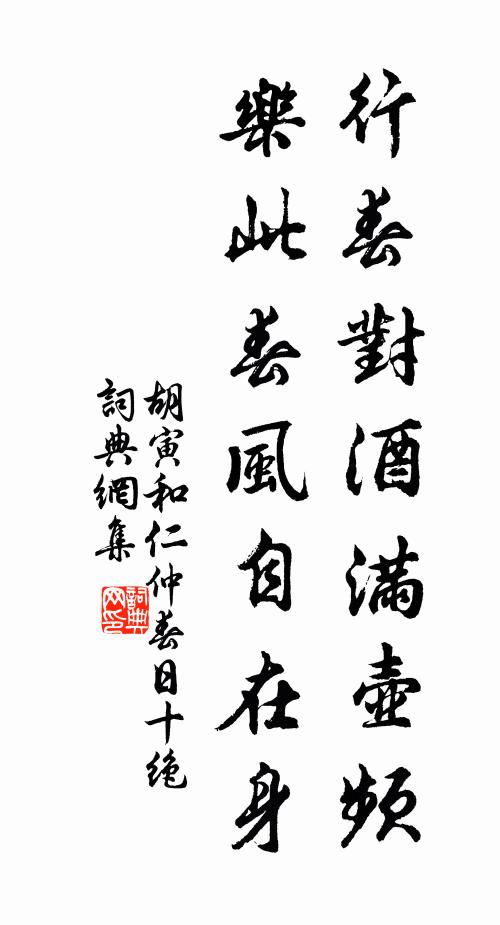 行春對酒滿壺頻
樂此春風自在身
胡寅和仁仲春日十絶
詞典網集
詞典
网印